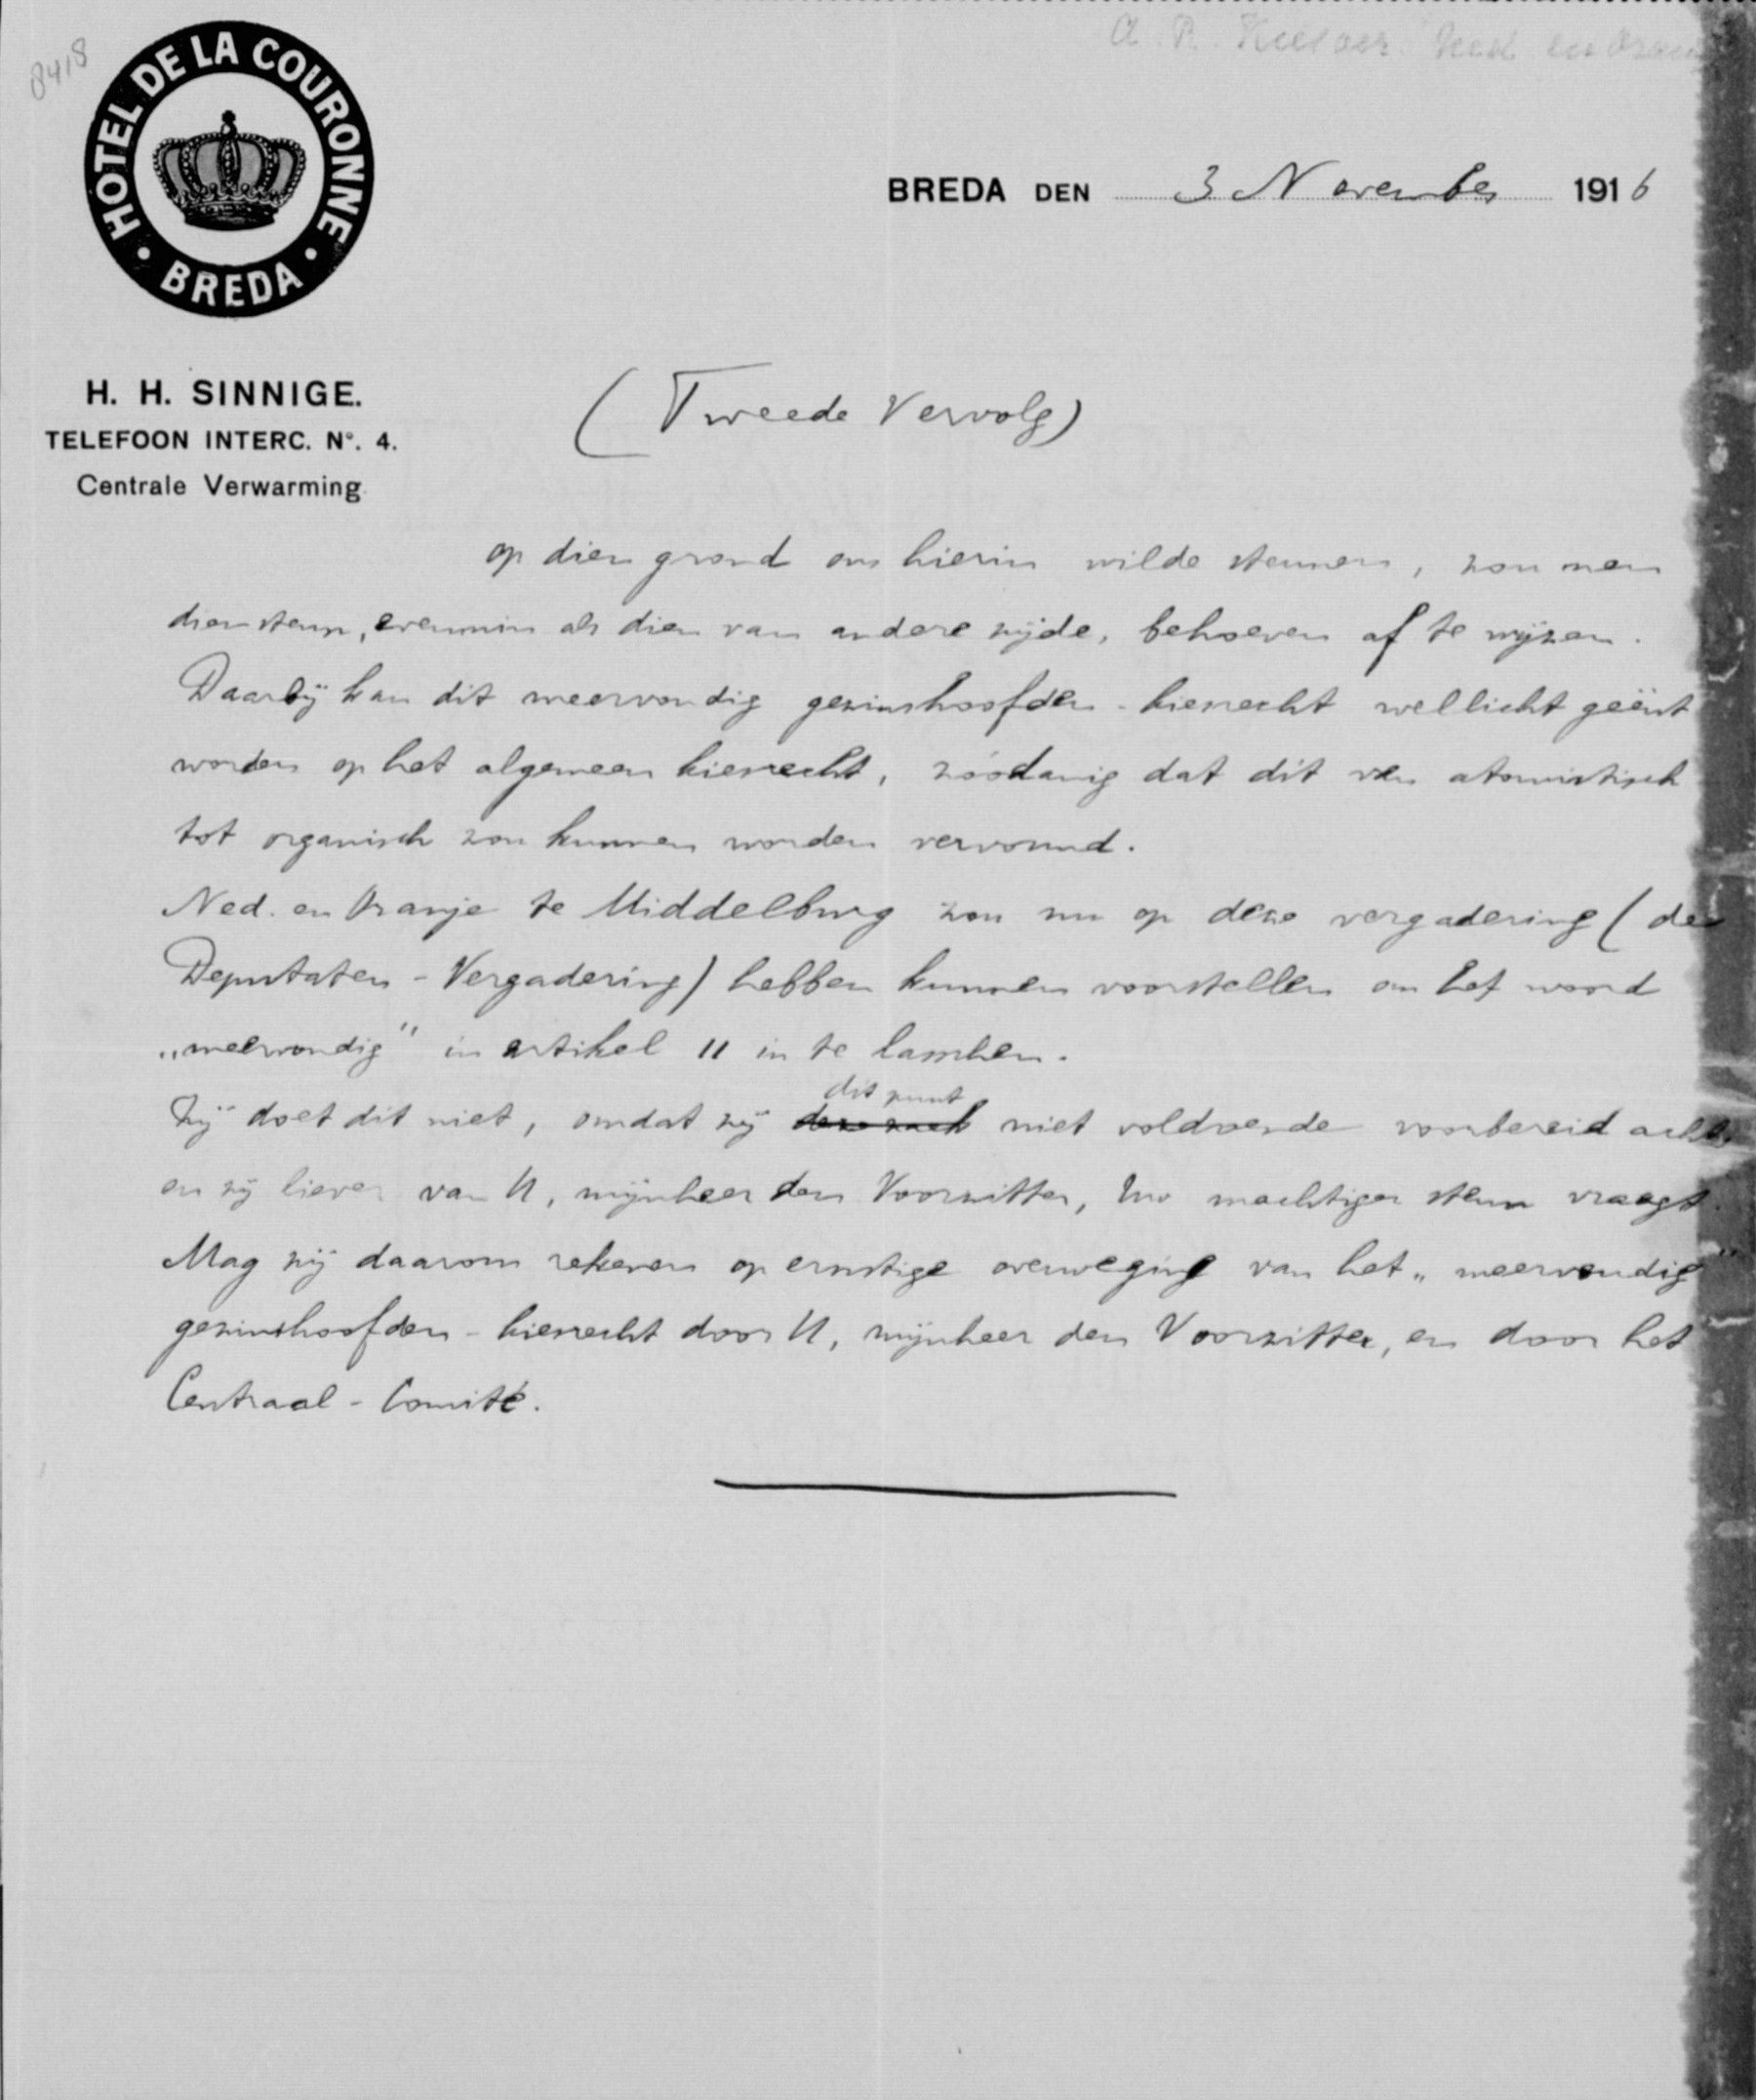 8418
A. R. Kiesver. Ned. en Oran
HOTEL DE LA COURONNE
• BREDA •
BREDA DEN 3 November 1916
H. H. SINNIGE.
TELEFOON INTERC. No. 4.
Centrale Verwarming
(Tweede Vervolg)
op dien grond ons hierin wilde steunen, zou men
dien steun, evenmin als dien van andere zijde, behoeven af te wijzen.
Daarbij kan dit meervoudig gezinshoofden-kiesrecht wellicht geënt
worden op het algemeen kiesrecht, zóódanig dat dit van atomistisch
tot organisch zou kunnen worden vervormd.
Ned. en Oranje te Middelburg zou nu op deze vergadering (de
Deputaten-Vergadering) hebben kunnen voorstellen om het woord
„meervoudig" in artikel 11 in te lasschen.
dit punt
Zij doet dit niet, omdat zij deze zaak niet voldoende voorbereid acht,
en zij liever van U, mijnheer den Voorzitter, Uw machtigen steun vraagt.
Mag zij daarom rekenen op ernstige overweging van het „meervoudig"
gezinshoofden-kiesrecht door U, mijnheer den Voorzitter, en door het
Centraal-Comité.